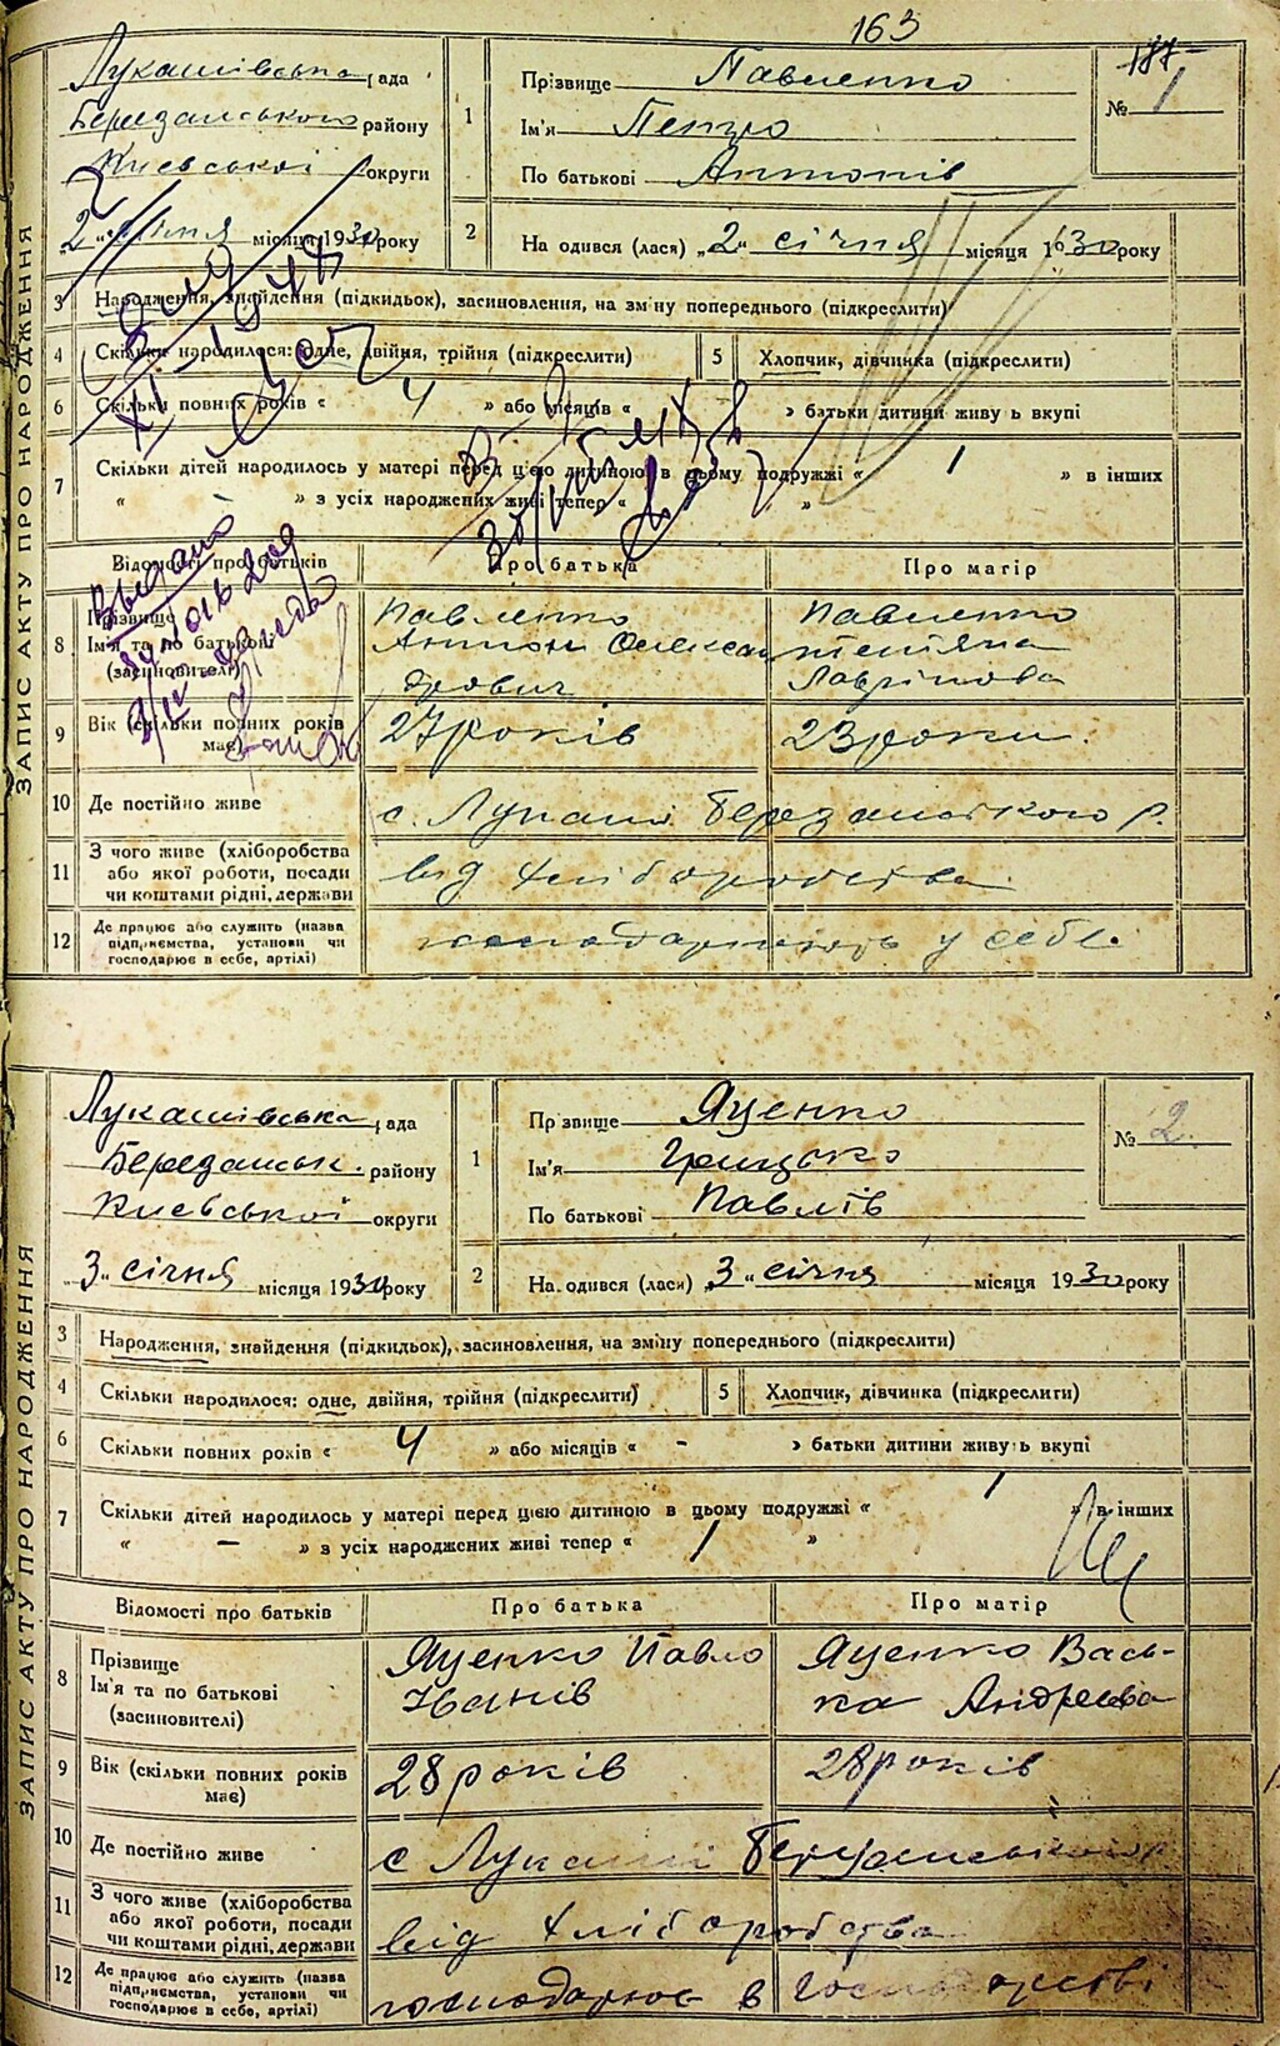 163
Лукашівська рада
Березанського району
Києвської округи
„2“ січня місяця 1930 року
1
Прізвище Павленко
Ім'я Петро
По батькові Антонів
187
№ 1
2
На одився (лася) „2“ січня місяця 1930 року
ЗАПИС АКТУ ПРО НАРОДЖЕННЯ
3 Народження, знайдення (підкидьок), засиновлення, на зміну попереднього (підкреслити)
4 Скільки народилося: одне, двійня, трійня (підкреслити)
5 Хлопчик, дівчинка (підкреслити)
6 Скільки повних років « 4 » або місяців « » батьки дитини живу ь вкупі
7 Скільки дітей народилось у матері перед цією дитиною в цьому подружжі « 1 » в інших
« » з усіх народжених живі тепер « »
Видано
Відомості про батьків
Про батька
Про матір
8 Прізвище
Ім'я та по батькові
(засиновителі)
Павленко
Антон Олексан
дрович
Павленко
Тетяна
Лаврінова
9 Вік (скільки повних років
має)
27 років
23 роки.
10 Де постійно живе
с. Лукаші Березанського р.
11 З чого живе (хліборобства
або якої роботи, посади
чи коштами рідні, держави
від хліборобства
12 Де працює або служить (назва
підприємства, установи чи
господарює в себе, артілі)
господарюють у себе.
Лукашівська рада
Березанськ. району
Києвської округи
„3“ січня місяця 1930 року
1
Пр звище Яценко
Ім'я Грицько
По батькові Павлів
№ 2.
2
На одився (лася) „3“ січня місяця 1930 року
ЗАПИС АКТУ ПРО НАРОДЖЕННЯ
3 Народження, знайдення (підкидьок), засиновлення, на зміну попереднього (підкреслити)
4 Скільки народилося: одне, двійня, трійня (підкреслити)
5 Хлопчик, дівчинка (підкреслити)
6 Скільки повних років « 4 » або місяців « - » батьки дитини живу ь вкупі
7 Скільки дітей народилось у матері перед цією дитиною в цьому подружжі « 1 » в інших
« – » з усіх народжених живі тепер « 1 »
Відомості про батьків
Про батька
Про матір
8 Прізвище
Ім'я та по батькові
(засиновителі)
Яценко Павло
Іванів
Яценко Вась-
ка Андреєва
9 Вік (скільки повних років
має)
28 років
28 років
10 Де постійно живе
с Лукаші Березанського р.
11 З чого живе (хліборобства
або якої роботи, посади
чи коштами рідні, держави
від хліборобства
12 Де працює або служить (назва
підприємства, установи чи
господарює в себе, артілі)
господарює в господарстві